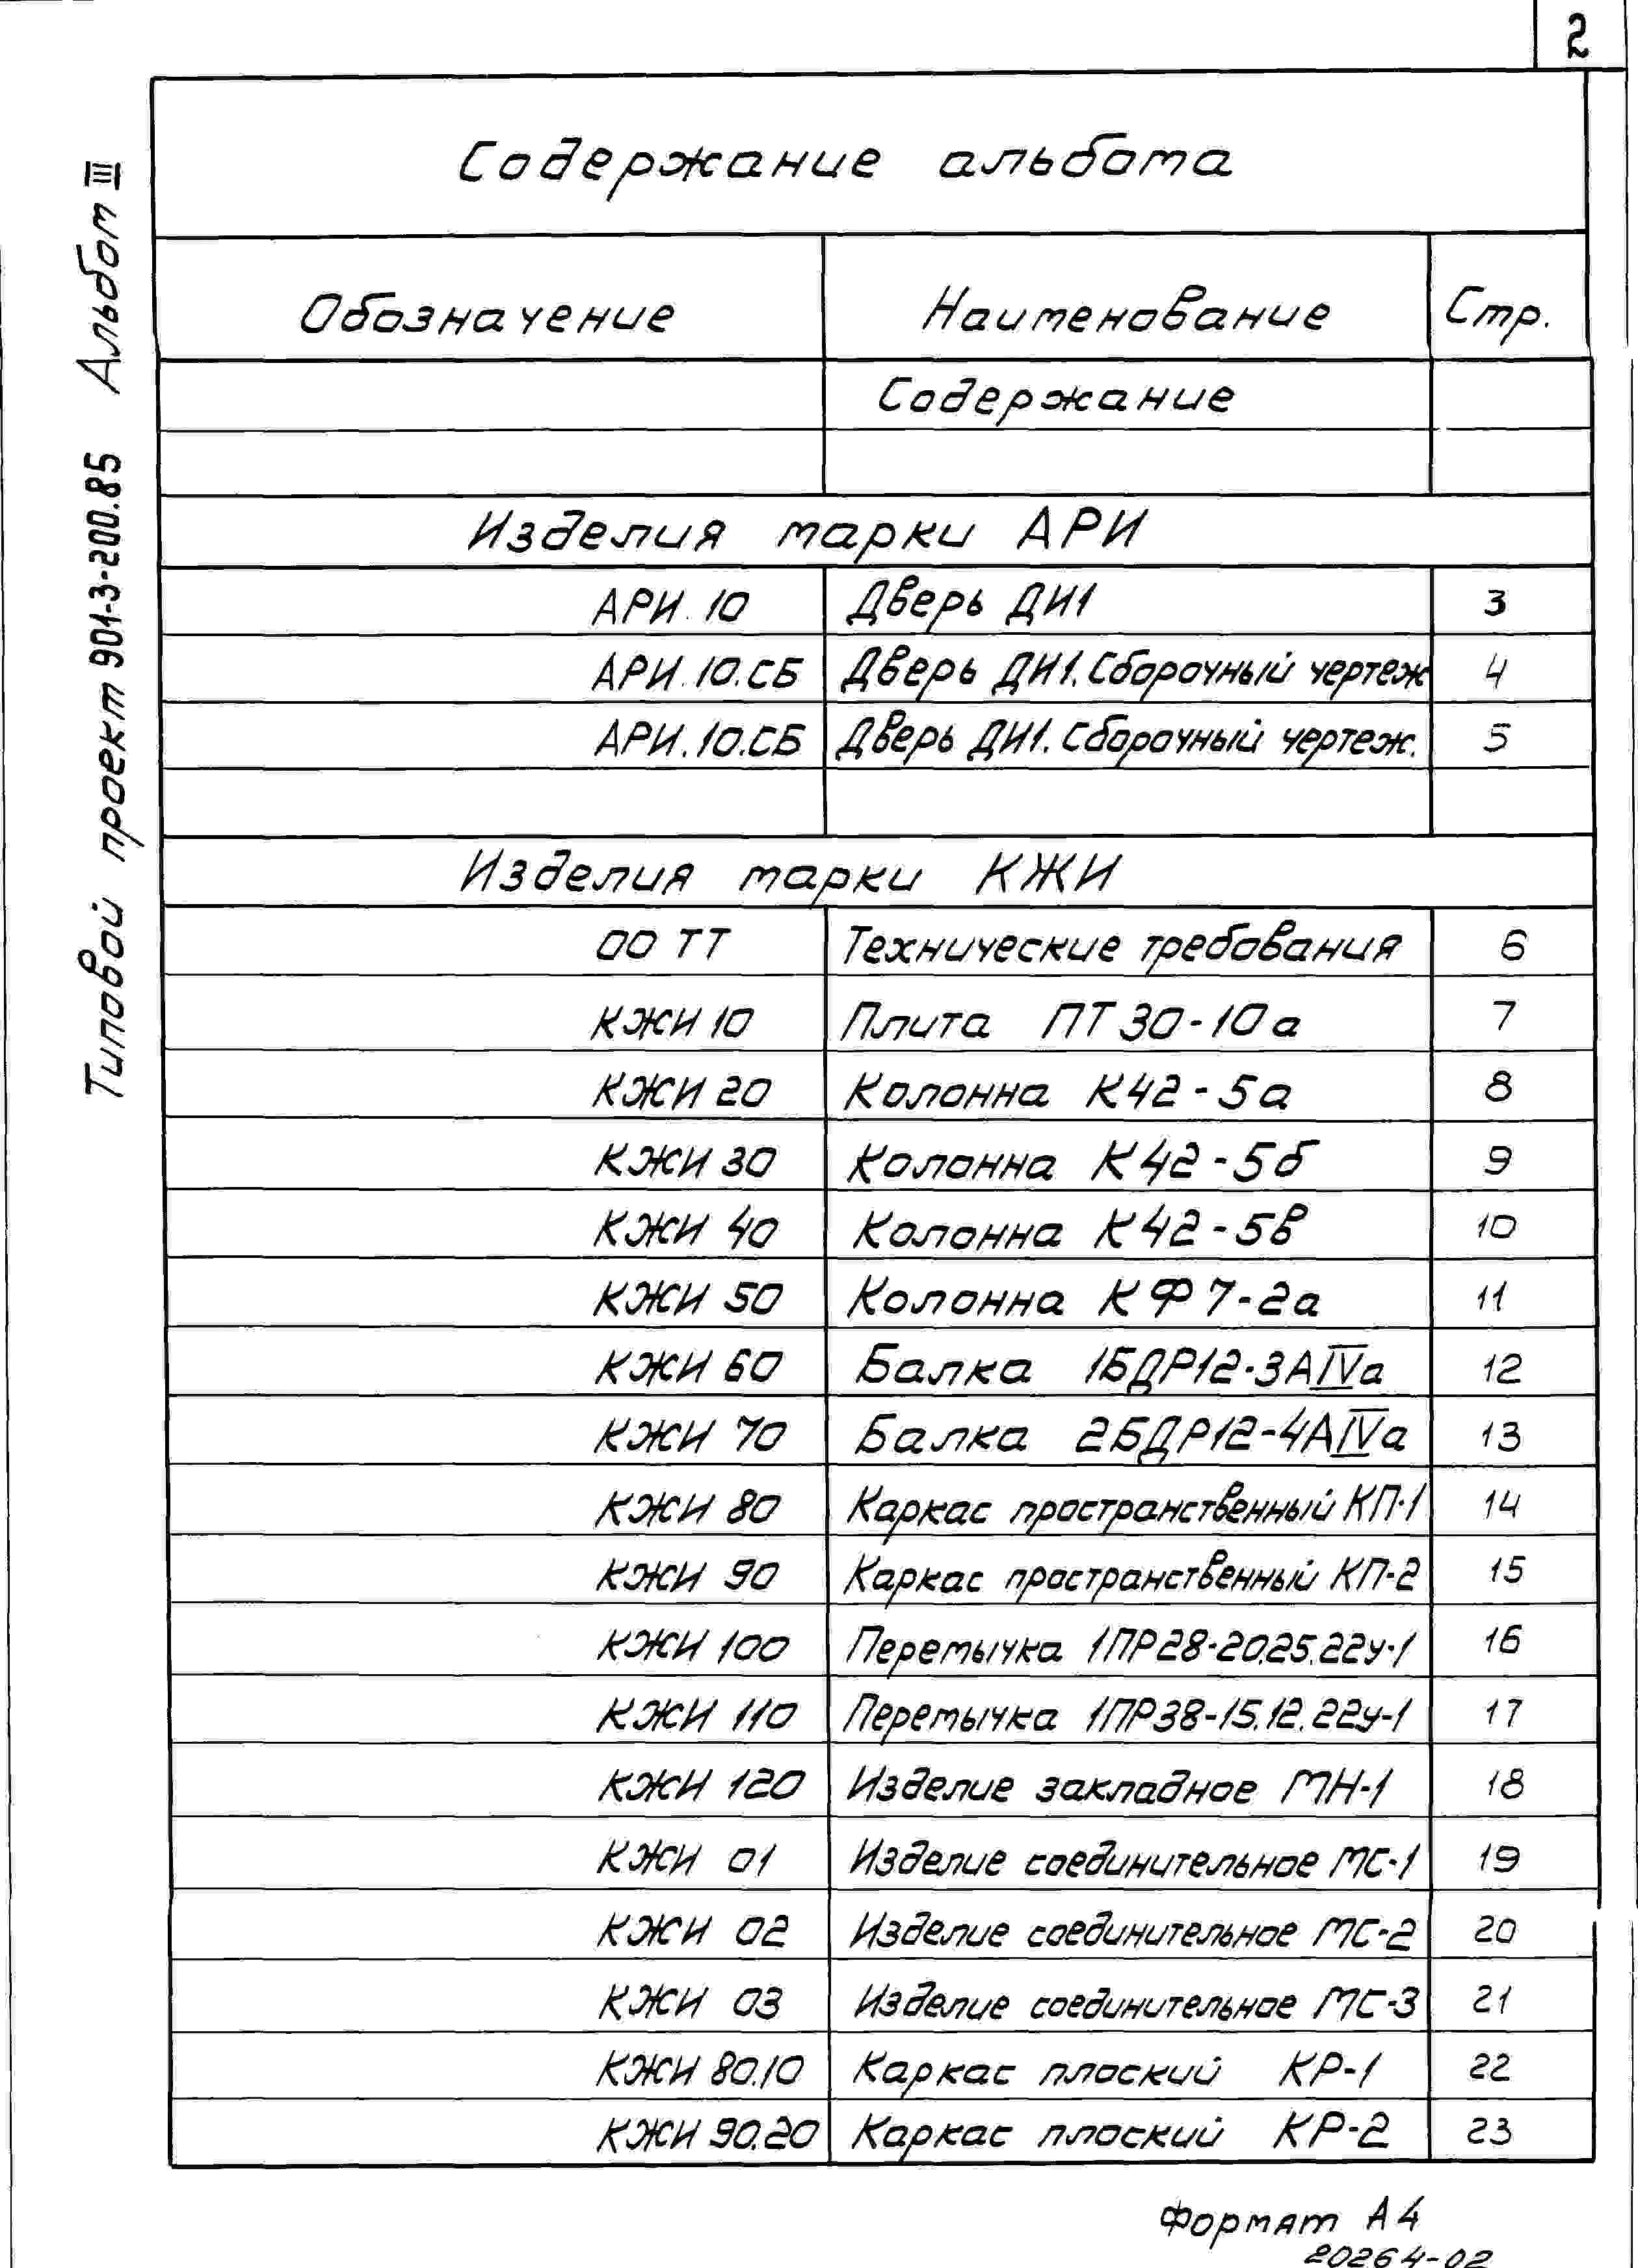 2
Содержание альбома
Типовой проект 901-3-200.85 Альбом III
Обозначение Наименование Стр.
Содержание
Изделия марки АРИ
АРИ.10 Дверь ДИ1 3
АРИ.10.СБ Дверь ДИ1. Сборочный чертеж 4
АРИ.10.СБ Дверь ДИ1. Сборочный чертеж. 5
Изделия марки КЖИ
00 ТТ Технические требования 6
КЖИ 10 Плита ПТ 30-10а 7
КЖИ 20 Колонна К42-5а 8
КЖИ 30 Колонна К42-5б 9
КЖИ 40 Колонна К42-5в 10
КЖИ 50 Колонна КФ7-2а 11
КЖИ 60 Балка 1БДР12-3АIVа 12
КЖИ 70 Балка 2БДР12-4АIVа 13
КЖИ 80 Каркас пространственный КП-1 14
КЖИ 90 Каркас пространственный КП-2 15
КЖИ 100 Перемычка 1ПР28-20.25.22у-1 16
КЖИ 110 Перемычка 1ПР38-15.12.22у-1 17
КЖИ 120 Изделие закладное МН-1 18
КЖИ 01 Изделие соединительное МС-1 19
КЖИ 02 Изделие соединительное МС-2 20
КЖИ 03 Изделие соединительное МС-3 21
КЖИ 80.10 Каркас плоский КР-1 22
КЖИ 90.20 Каркас плоский КР-2 23
Формат А4
20264-02